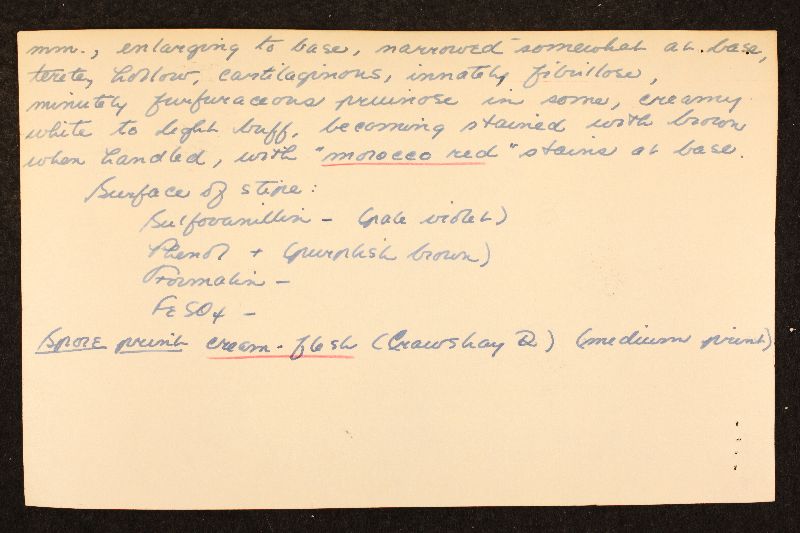 mm., enlarging to base, narrowed somewhat at base,
terete, hollow, cartilaginous, innately fibrillose,
minutely furfuraceous pruinose in some, creamy
white to light buff, becoming stained with brown
when handled, with "morocco red" stains at base.
Surface of stipe:
Sulfovanillin - (pale violet)
Phenol + (purplish brown)
Formalin -
FeSO4 -
Spore print cream-flesh (Crawshay D) (medium print)